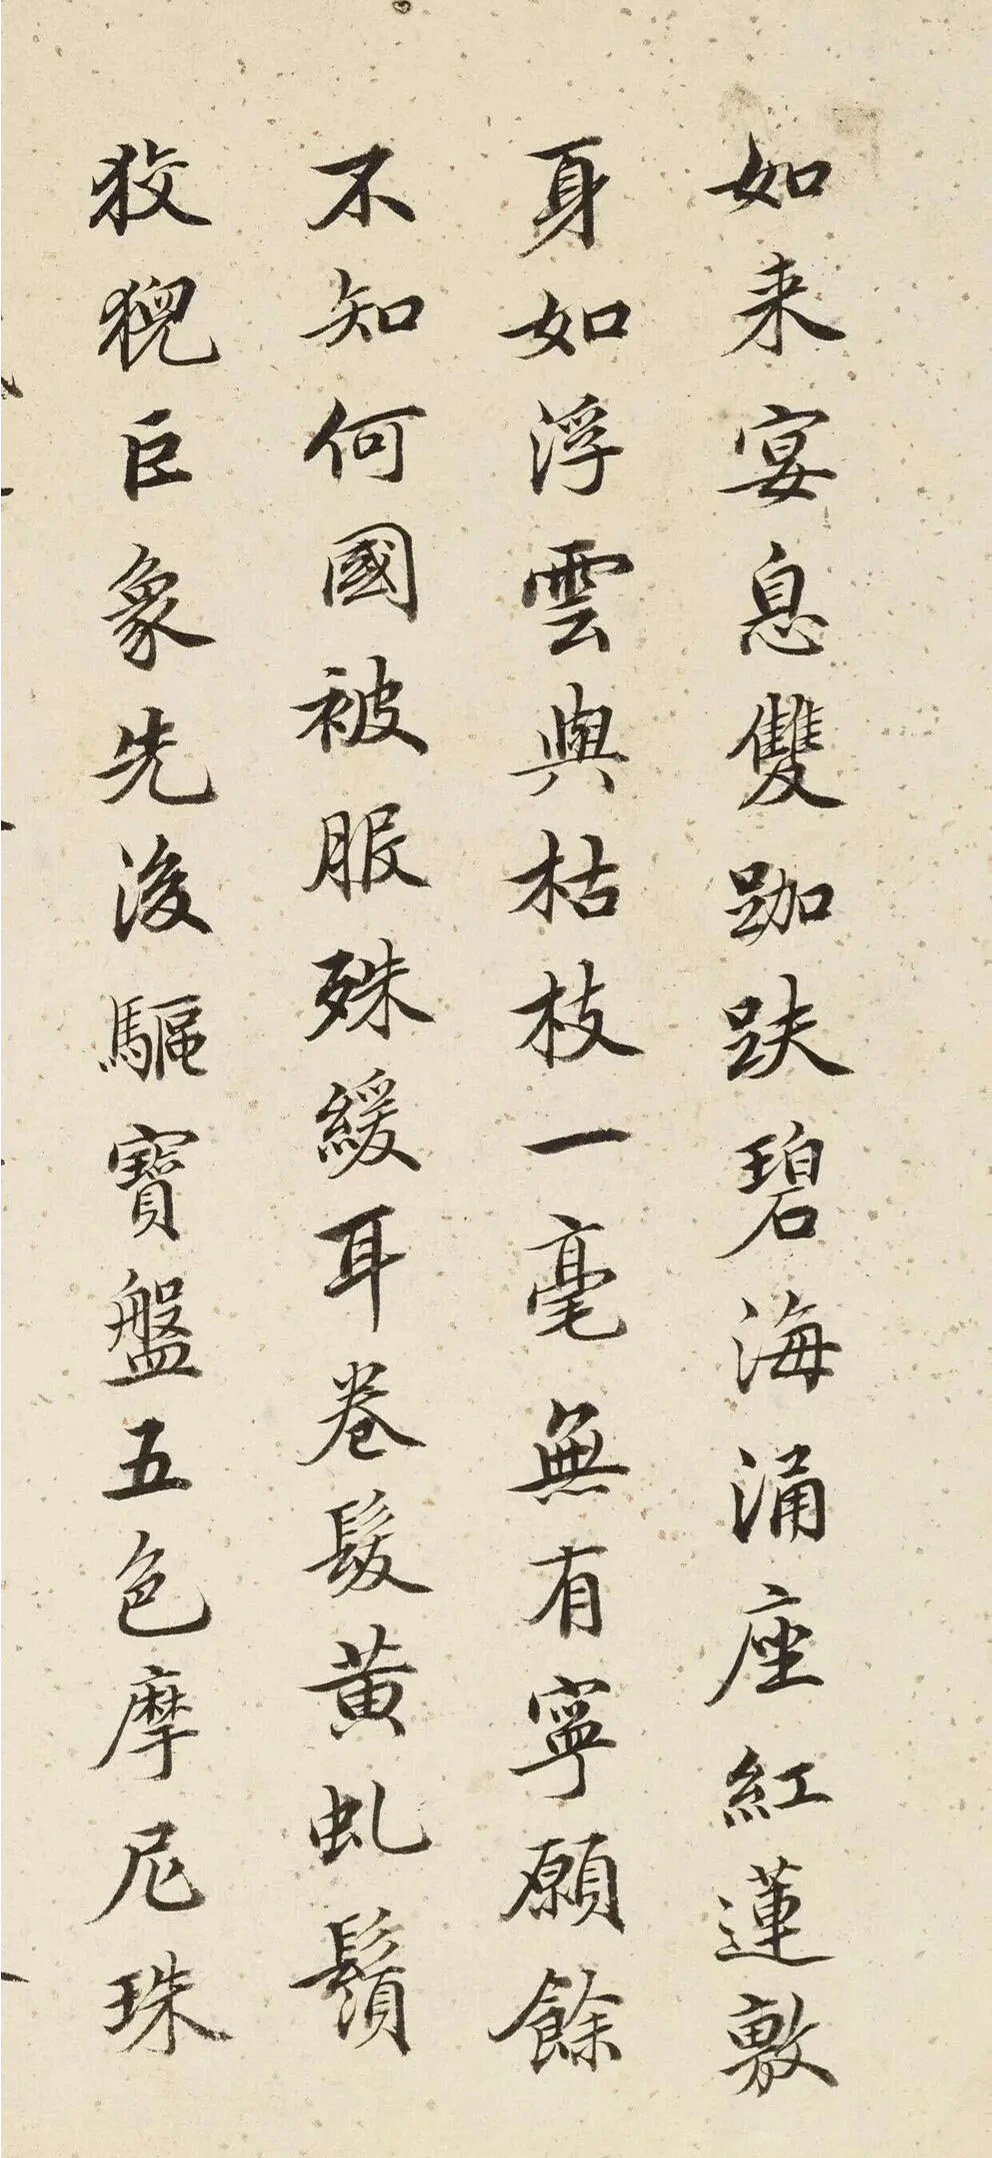 如来宴息雙跏趺碧海涌座紅蓮敷
身如浮雲與枯枝一毫無有寧願餘
不知何國被服殊緩耳卷髮黄虬鬚
狻猊巨象先後驅寶盤五色摩尼珠